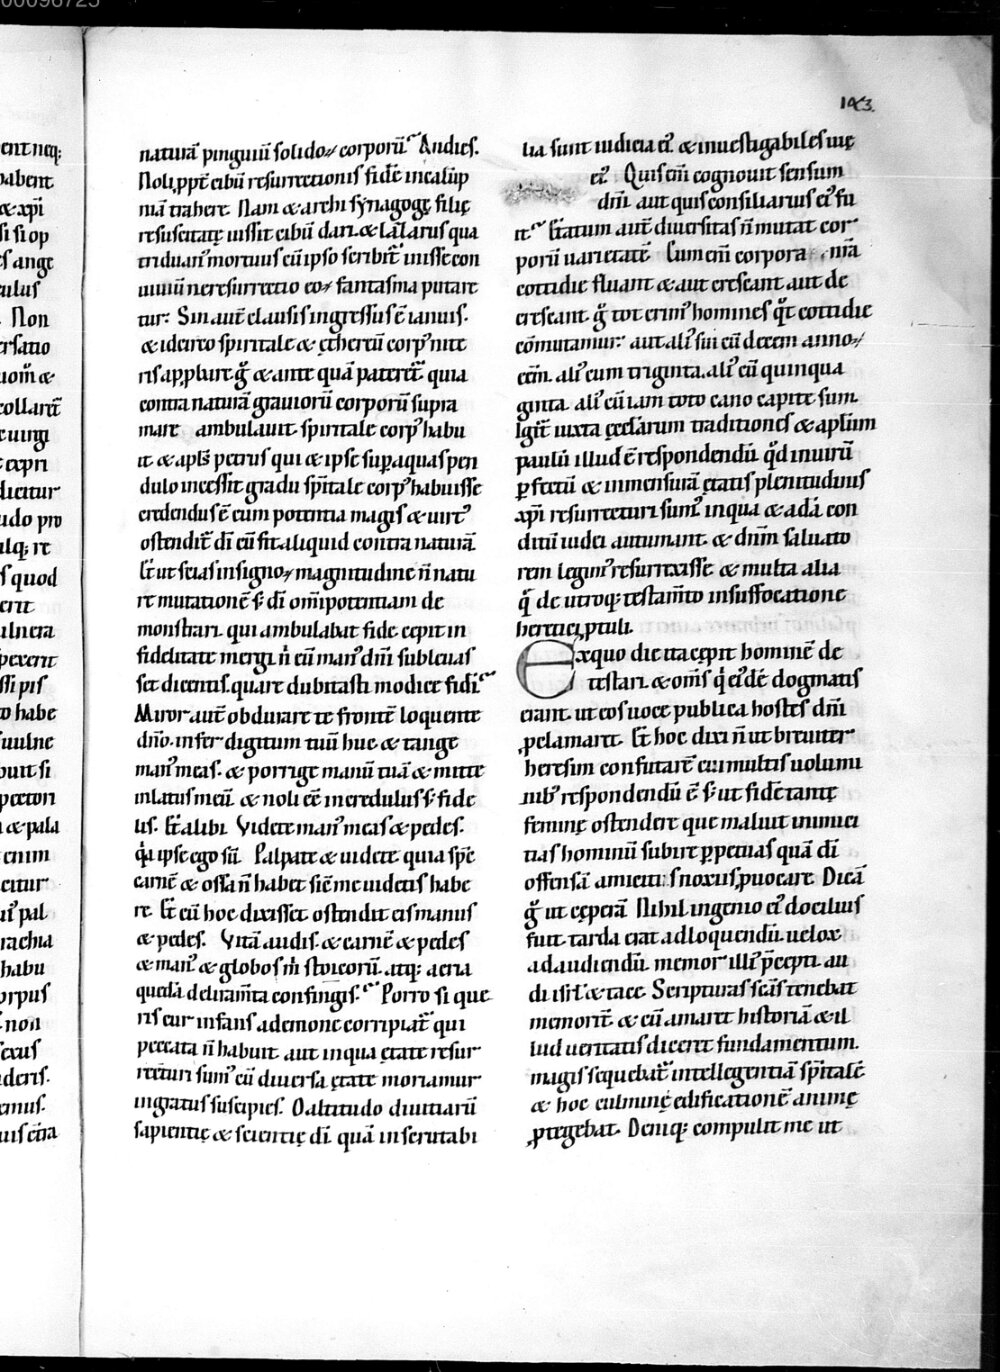 143.
naturā pinguiū solidoꝝ corporū. Audies.
Noli ꝓpt̄ cibū resurrectionis fidē in calūp
niā trahere. Nam & archisẏnagogę filię
resuscitatę iussit cibū dari. & lazarus qua
triduanꝰ mortuus cū ipso scribit̄ inisse con
uiuiū ne resurrectio eoꝝ fantasma putare
tur. Sin autē clausis ingressus ē ianuis.
& idcirco spiritale & ęthereū corpꝰ nite
ris ap̱plure ḡ & ante quā pateret̄ quia
contra naturā grauiorū corporū supra
mare ambulauit spiritale corpꝰ habu
it & apl̄s petrus qui & ipse suꝑ aquas pen
dulo incessit gradu spītale corpꝰ habuisse
credendus ē cum potentia magis & uirtꝰ
ostendit̄ dī cū fit aliquid contra naturā.
Et ut scias in signoꝝ magnitudine ñ natu
re mutationē s; dī om̄ipotentiam de
monstrari. qui ambulabat fide cepit in
fidelitate mergi ñ eū manꝰ dn̄i subleuas
set dicentis. quare dubitasti modice fidi.
Miror autē obdurare te frontē loquente
dn̄o. infer digitum tuū huc & tange
manꝰ meas. & porrige manū tuā & mitte
in latus meū. & noli ēē incredulus s; fide
lis. Et alibi. Videte manꝰ meas & pedes.
q̇a ipse ego sū. Palpate & uidete quia sp̄s
carnē & ossa ñ habet sic̄ me uidetis habe
re. Et cū hoc dixisset ostendit eis manus
& pedes. Vitā audis. & carnē & pedes
& manꝰ & globos m̄ stoicorū. atq; aeria
quedā deliram̄ta confingis. Porro si que
ris cur infans a demone corripiat̄ qui
peccata ñ habuit aut in qua ętate resur
recturi sumꝰ cū diuersa ętate moriamur
ingratus suscipies. O altitudo diuitiarū
sapientię & scientię dī quā inserutabi
lia sunt iudicia eꝰ. & inuestigabiles uię
eꝰ. Quis em̄ cognouit sensum
dn̄i aut quis consiliarus eꝰ fu
it. Etatum aut̄ diuersitas ñ mutat cor
porū uarietatē. Cum em̄ corpora nr̄a
cottidie fluant & aut crescant aut de
crescant. ḡ tot erimꝰ homines q̄t cottidie
cōmutamur. aut aliꝰ fui cū decem annoꝝ
ēēm. aliꝰ cum triginta. aliꝰ cū quinqua
ginta. aliꝰ cū iam toto cano capite sum.
Igit̄ iuxta ęcclārum traditiones & apl̄um
paulū illud ē respondendū. q̄d in uirū
ꝑfectū & in mensurā ętatis plenitudinis
xp̄i resurrecturi sumꝰ in qua & adā con
ditū iudei autumant. & dn̄m saluato
rem legimꝰ resurrexisse & multa alia
q̄ de utroq; testam̄to in suffocatione
heretici ꝓtuli.
Exquo die ita cepit hominē de
testari. & om̄s q̇ eiꝰdē dogmatis
erant. ut eos uoce publica hostes dn̄i
ꝓclamaret. Et hoc dixi ñ ut breuiter
heresim confutarē cui multis uolumi
nibꝰ respondendū ē s; ut fidē tantę
feminę ostendere que maluit inimici
tias hominū subire ꝑpetuas quā dī
offensā amicitiis noxiis ꝓuocare. Dicā
ḡ ut cęperā. Nihil ingenio eꝰ docilius
fuit. tarda erat ad loquendū. uelox
ad audiendū. memor illiꝰ p̄cepti. au
di isrl̄ & tace. Scripturas sc̄as tenebat
memorit̄. & cū amaret historiā & il
lud ueritatis diceret fundamentum.
magis sequebat̄ intellegentiā spītalē
& hoc culminę edificationē animę
ꝓtegebat. Deniq; compulit me ut